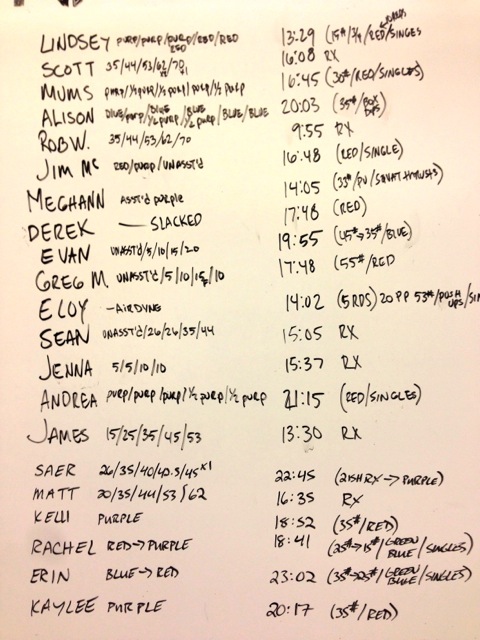 LINDSEY PURP/PURP/PURP/RED/RED 13:29 (15#/3/4/RED/SINGLES
RED ROUNDS
SCOTT 35/44/53/62/70 16:08 RX
MUMS PURP/½PURP/½PURP/PURP/½ PURP 16:45 (30#/RED/SINGLES)
ALISON BLUE/PURP/BLUE ½PURP/BLUE ½PURP/BLUE/BLUE 20:03 (35#/BOX DIPS)
ROB W. 35/44/53/62/70 9:55 RX
JIM MC RED/PURP/UNASST'D 16:48 (RED/SINGLE)
MEGHANN ASST'D PURPLE 14:05 (33#/PU/SQUAT THRUSTS)
DEREK — SLACKED 17:48 (RED)
EVAN UNASST'D/5/10/15/20 19:55 (45#→35#/BLUE)
GREG M. UNASST'D/5/10/15/10 17:48 (55#/RED
ELOY – AIRDYNE 14:02 (5 RDS) 20 PP 53#/PUSH UPS/
SEAN UNASST'D/26/26/35/44 15:05 RX
JENNA 5/5/10/10 15:37 RX
ANDREA PURP/PURP/PURP/½ PURP/½ PURP 21:15 (RED/SINGLES)
JAMES 15/25/35/45/53 13:30 RX
SAER 26/35/40/42.5/45 x1 22:45 (21SH RX → PURPLE)
MATT 20/35/44/53/62 16:35 RX
KELLI PURPLE 18:52 (35#/RED)
RACHEL RED → PURPLE 18:41 (25#→15#/GREEN BLUE/SINGLES)
ERIN BLUE → RED 23:02 (35#→25#/GREEN BLUE/SINGLES)
KAYLEE PURPLE 20:17 (35#/RED)